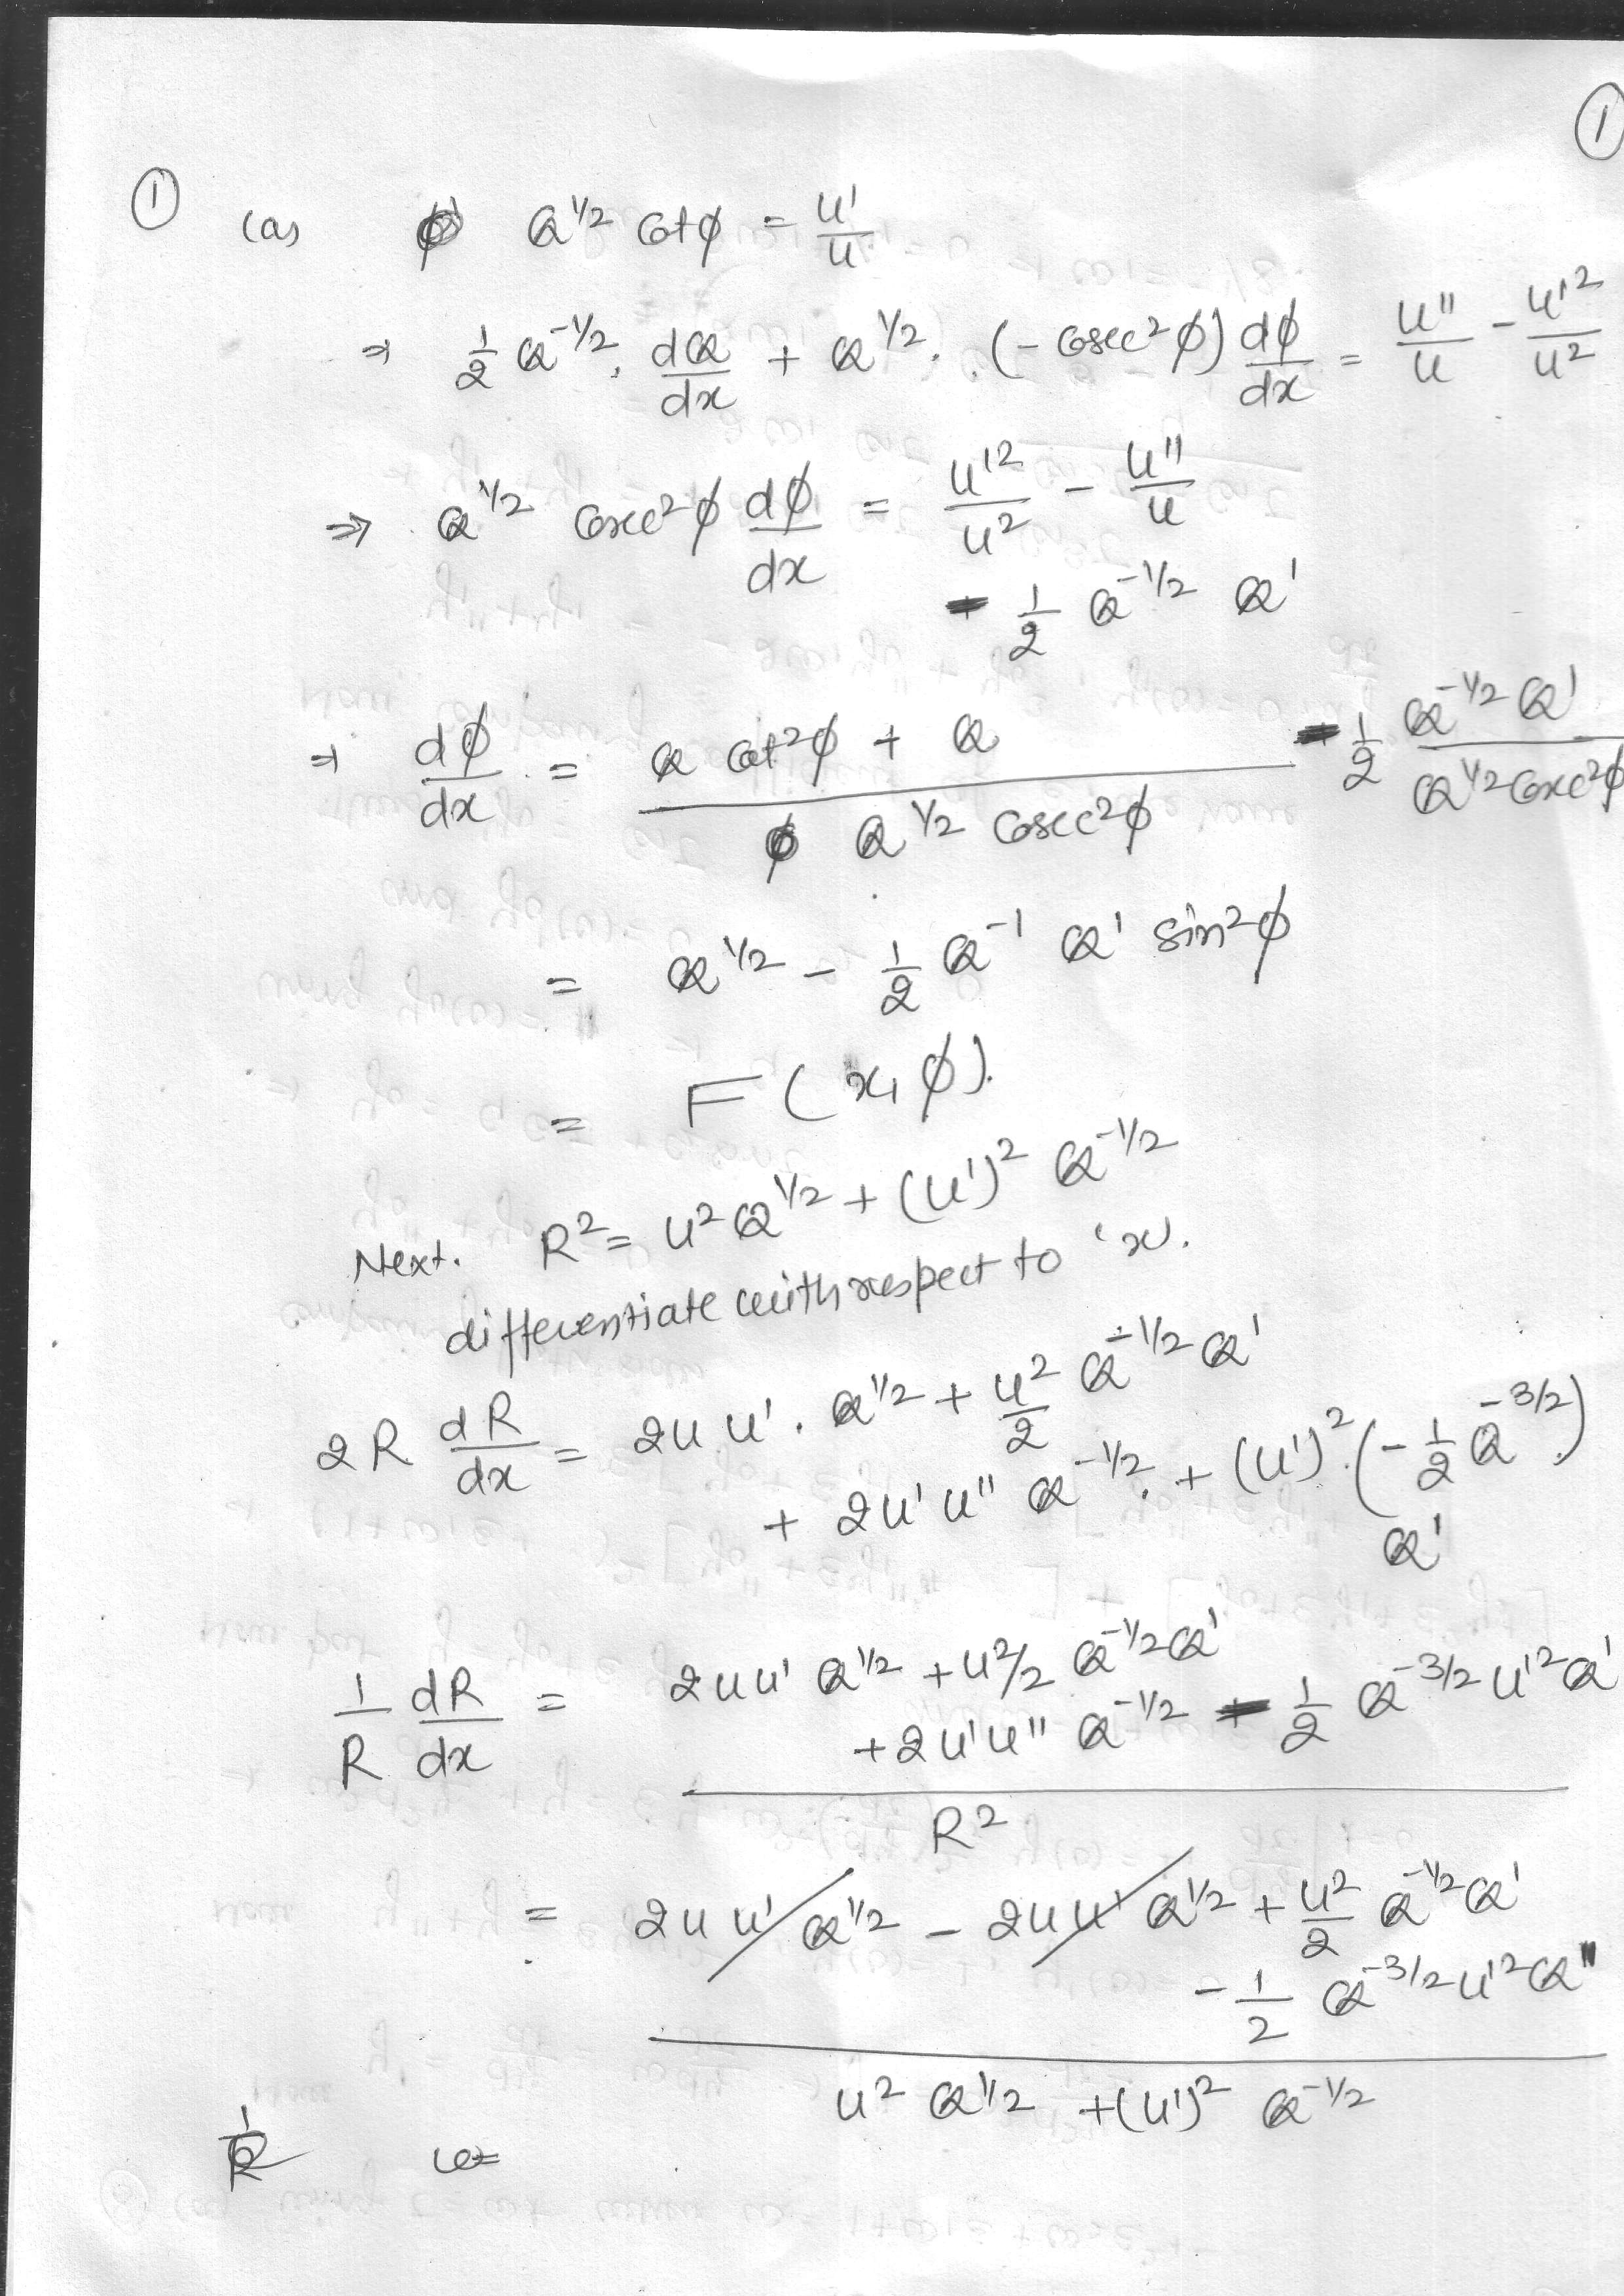 ①
① (a) Q^{1/2} Cot ϕ = u'/u
⇒ 1/2 Q^{-1/2} . dQ/dx + Q^{1/2} . (- Cosec²ϕ) dϕ/dx = u''/u - u'²/u²
⇒ Q^{1/2} Cosec²ϕ dϕ/dx = u'²/u² - u''/u
+ 1/2 Q^{-1/2} Q'
⇒ dϕ/dx = (Q cot²ϕ + Q)/(Q^{1/2} Cosec²ϕ) + 1/2 (Q^{-1/2} Q')/(Q^{1/2} Cosec²ϕ)
= Q^{1/2} - 1/2 Q^{-1} Q' sin²ϕ
= F(x, ϕ).
Next. R² = u² Q^{1/2} + (u')² Q^{-1/2}
differentiate with respect to 'x'.
2R dR/dx = 2u u' . Q^{1/2} + u²/2 Q^{-1/2} Q'
+ 2u' u'' Q^{-1/2} . + (u')² (- 1/2 Q^{-3/2})
Q'
1/R dR/dx = 2uu' Q^{1/2} + u²/2 Q^{-1/2} Q'
+ 2u'u'' Q^{-1/2} - 1/2 Q^{-3/2} u'² Q'
R²
= 2u u' Q^{1/2} - 2uu' Q^{1/2} + u²/2 Q^{-1/2} Q'
- 1/2 Q^{-3/2} u'² Q''
u² Q^{1/2} + (u')² Q^{-1/2}